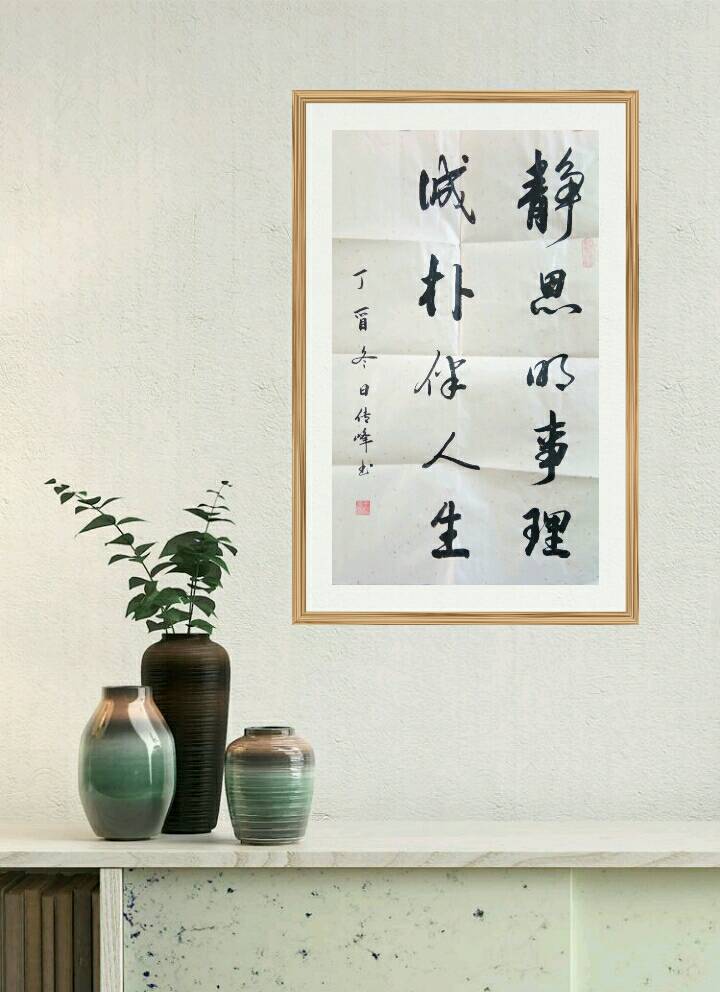 静思明事理
诚朴伴人生
丁酉冬日传峰书